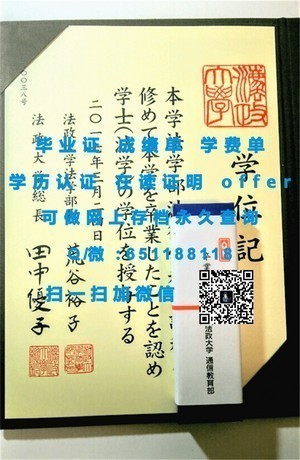 学位記
本学法学部
修めて本学を卒業したことを認め
学士(法学)の学位を授与する
法政大学法学部長 荒谷裕子
法政大学総長 田中優子
法政大学 通信教育部
毕业证 成绩单 学费单
学历认证 在读证明 offer
可做网上存档永久查询
Q/微:651188118
扫一扫加微信